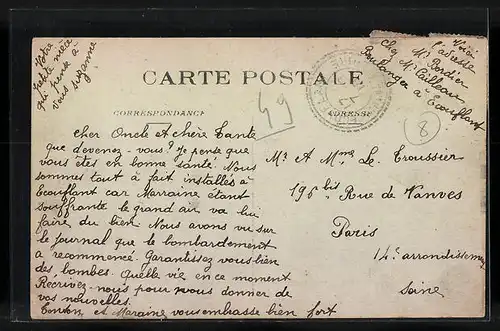 Votre
petite nièce
qui pense à
vous Suzanne
Voici
l'adresse
Mr Bordier
chez Mr Cailleau
Boulanger à Ecouflant
CARTE POSTALE
49
8
CORRESPONDANCE
ADRESSE
Cher Oncle et chère Tante
que devenez-vous? Je pense que
vous êtes en bonne santé. Nous
sommes tout à fait installés à
Ecouflant car Marraine étant
souffrante le grand air va lui
faire du bien. Nous avons vu sur
le journal que le bombardement
a recommencé. Garantissez vous bien
des bombes. Quelle vie en ce moment
Recevez-nous pour vous donner de
vos nouvelles.
Tonton et Maraine vous embrasse bien fort
Mr et Mme Le Troussier
196 bis Rue de Vanves
Paris
14e arrondissement
Seine